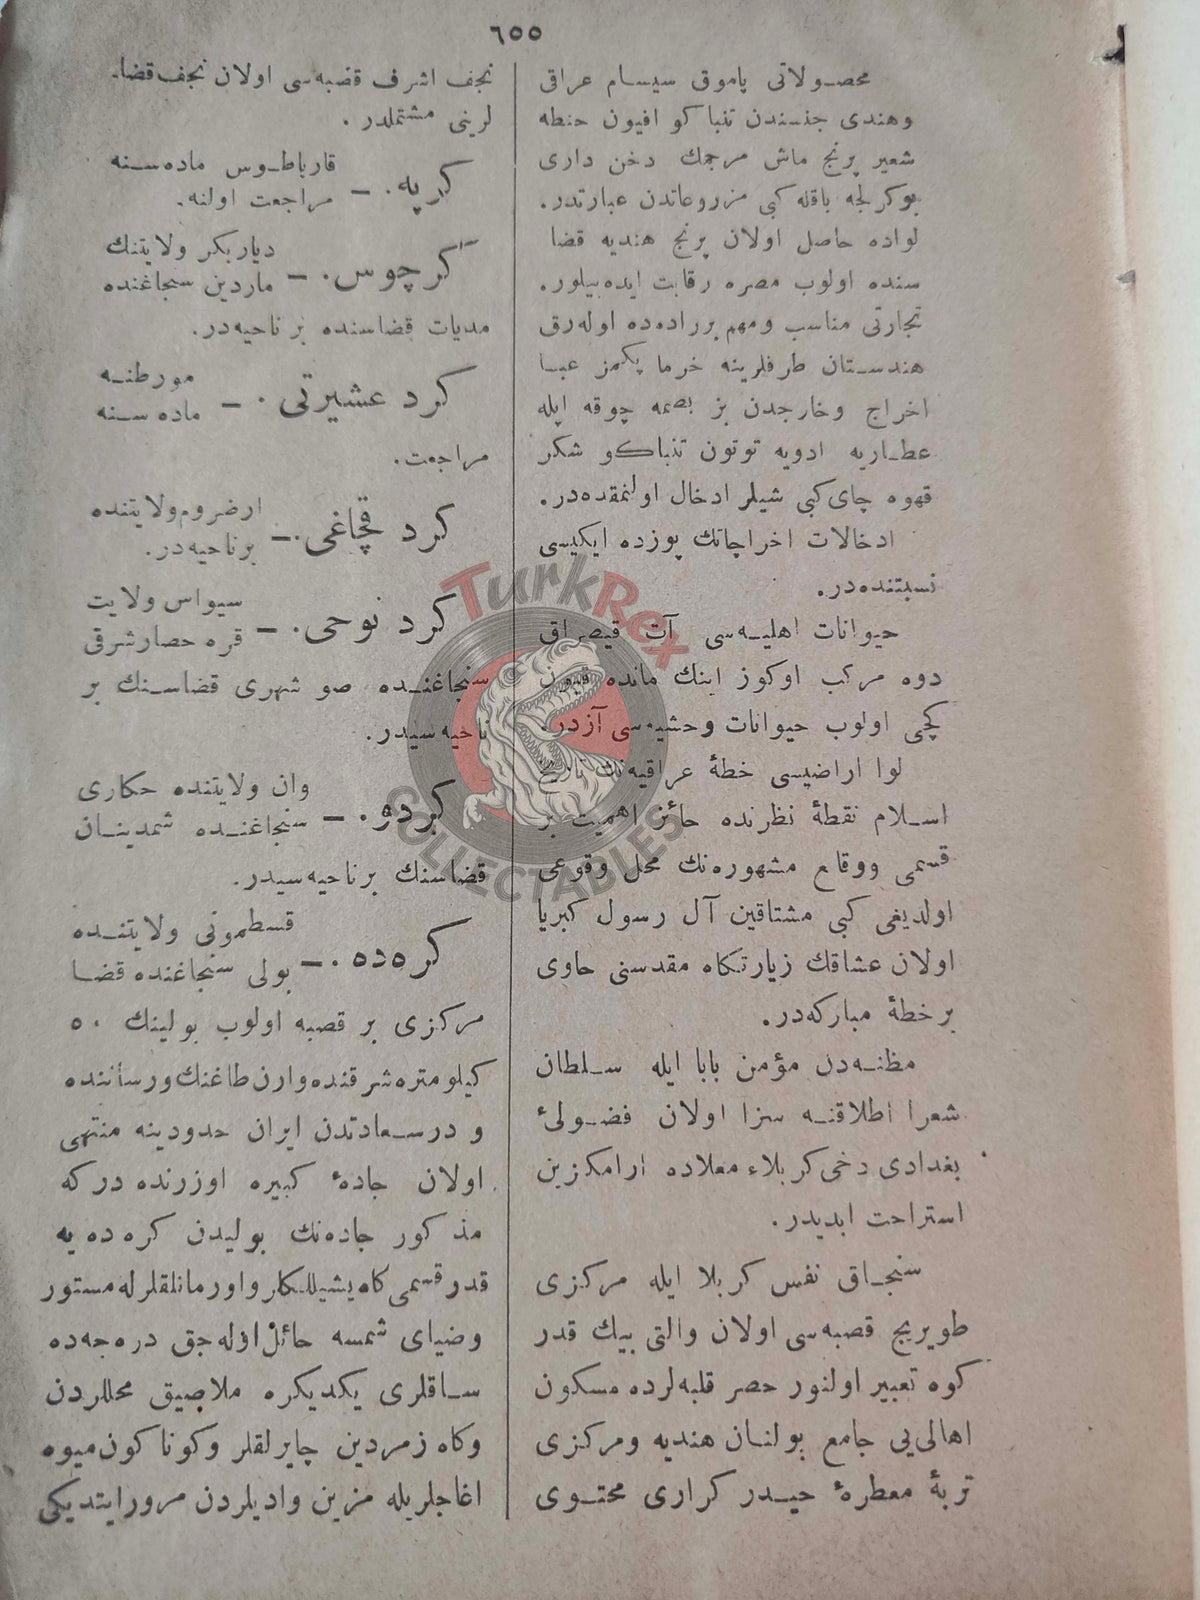 ٦٥٥
محصولاتی پاموق سیسام عراقی
وهندی جنسندن تنباکو افیون حنطه
شعیر پرنج ماش مرجمك دخن داری
بوکرلجه باقله کبی مزروعاتدن عبارتدر.
لواده حاصل اولان پرنج هندیه قضا
سنده اولوب مصره رقابت ایده بیلور.
تجارتی مناسب ومهم برراده ده اوله رق
هندستان طرفلرینه خرما پکمز عبا
اخراج وخارجدن بز بصمه چوقه ایله
عطاریه ادویه توتون تنباکو شکر
قهوه چای کبی شیلر ادخال اولنمقده در.
ادخالات اخراجاتك یوزده ایکیسی
نسبتنده در.
حیوانات اهلیه سی آت قیصراق
دوه مرکب اوکوز اینك مانده قیون
کچی اولوب حیوانات وحشیه سی آزدر.
لوا اراضیسی خطهٔ عراقیه نك تاریخ
اسلام نقطهٔ نظرنده حائز اهمیت بر
قسمی ووقایع مشهوره نك محل وقوعی
اولدیغی کبی مشتاقین آل رسول کبریا
اولان عشاقك زیارتکاه مقدسنی حاوی
برخطهٔ مبارکه در.
مظنه دن مؤمن بابا ایله سلطان
شعرا اطلاقنه سزا اولان فضولیٔ
بغدادی دخی کربلاء معلاده ارامکزین
استراحت ابدیدر.
سنجاق نفس کربلا ایله مرکزی
طویریج قصبه سی اولان والتی بیك قدر
کوه تعبیر اولنور حصر قلبه لرده مسکون
اهالی یی جامع بولنان هندیه ومرکزی
تربهٔ معطرهٔ حیدر کراری محتوی
نجف اشرف قضبه سی اولان نجف قضا.
لرینی مشتملدر.
کرپه. — قارباطوس ماده سنه
مراجعت اولنه.
کرچوس. — دیاربکر ولایتنك
ماردین سنجاغنده
مدیات قضاسنده بر ناحیه در.
کرد عشیرتی. — مورطنه
ماده سنه
مراجعت.
کرد قچاغی. — ارضروم ولایتنده
برناحیه در.
کرد نوحی. — سیواس ولایت
قره حصارشرقی
سنجاغنده صو شهری قضاسنك بر
ناحیه سیدر.
کردو. — وان ولایتنده حکاری
سنجاغنده شمدینان
قضاسنك برناحیه سیدر.
کره ده. — قسطمونی ولایتنده
بولی سنجاغنده قضا
مرکزی بر قصبه اولوب بولینك ٥٠
کیلومتره شرقنده وارن طاغنك ورسأننده
و درسعادتدن ایران حدودینه منتهی
اولان جادهٔ کبیره اوزرنده درکه
مذکور جاده نك بولیدن کره ده یه
قدر قسمی کاه یشیللکلر واورمانلقلرله مستور
وضیای شمسه حائل اوله جق درجه ده
ساقلری یکدیکره ملاصیق محللردن
وکاه زمردین چایرلقلر وکوناکون میوه
اغاجلریله مزین وادیلردن مرور ایتدیکی
TurkRex
COLLECTABLES